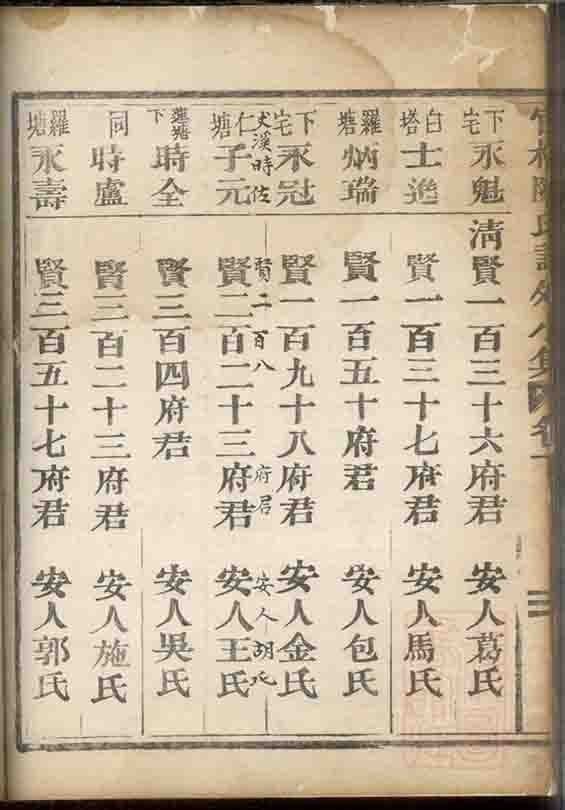 下宅 永魁 清賢一百三十六府君 安人葛氏
白塔 士進 賢一百三十七府君 安人馬氏
羅塘 炳瑞 賢一百五十府君 安人包氏
下宅 永冠 賢一百九十八府君 安人金氏
大溪時佐 賢二百八府君 安人胡氏
仁塘 子元 賢二百二十三府君 安人王氏
蓮塘下 時全 賢三百四府君 安人吳氏
同 時盧 賢三百二十三府君 安人施氏
羅塘 永壽 賢三百五十七府君 安人郭氏